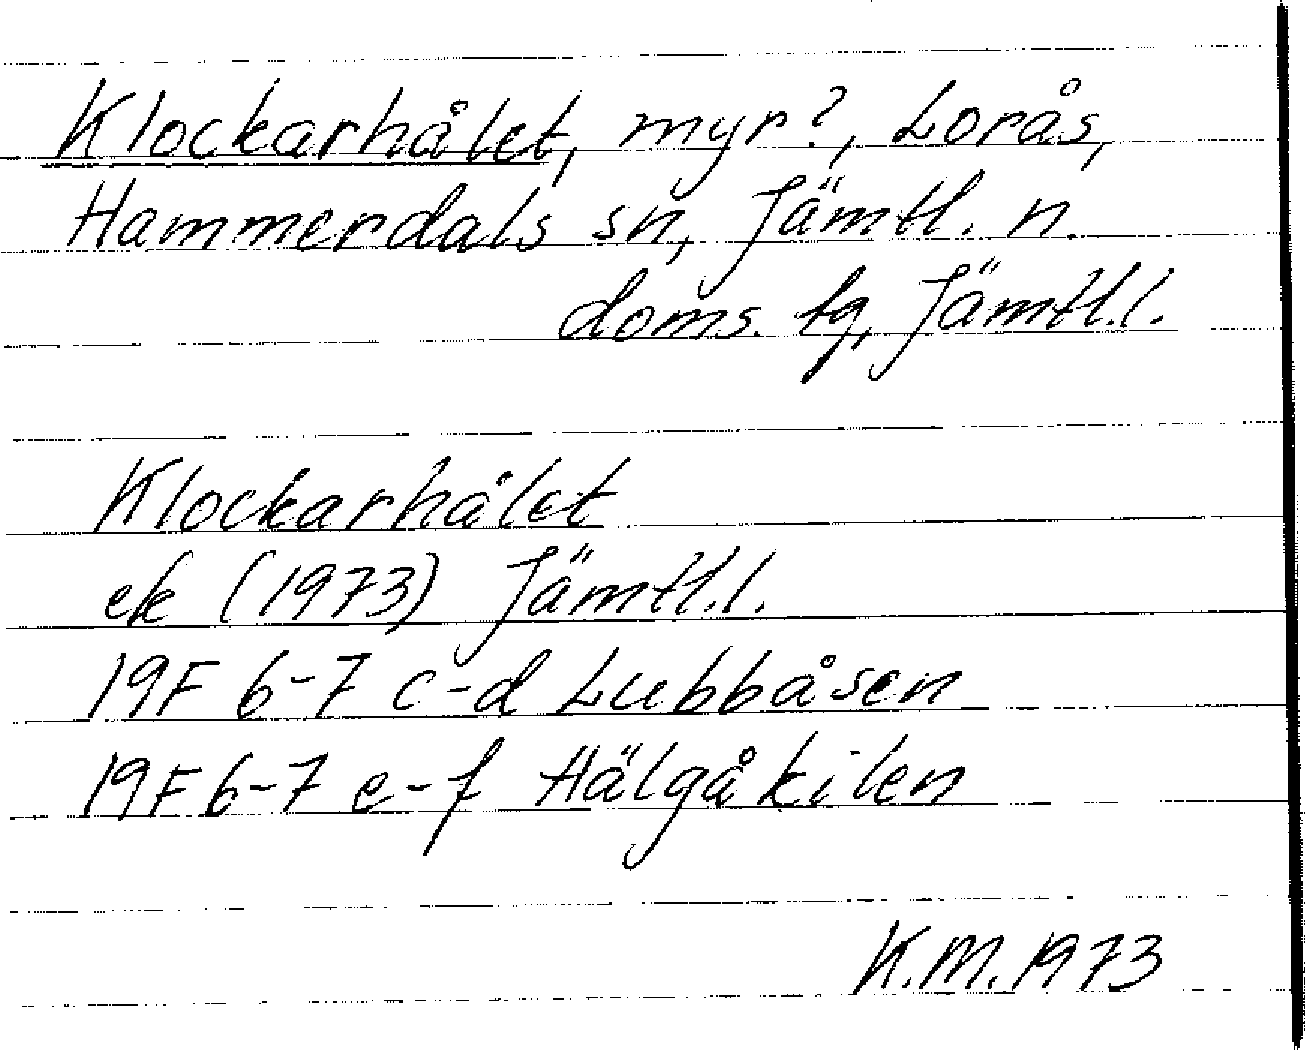 Klockarhålet, myr?, Lorås,
Hammerdals sn, Jämtl. n.
doms. tg, Jämtl.l.
Klockarhålet
ek (1973) Jämtl.l.
19F 6-7 c-d Lubbåsen
19F 6-7 e-f Hälgåkilen
K.M. 1973